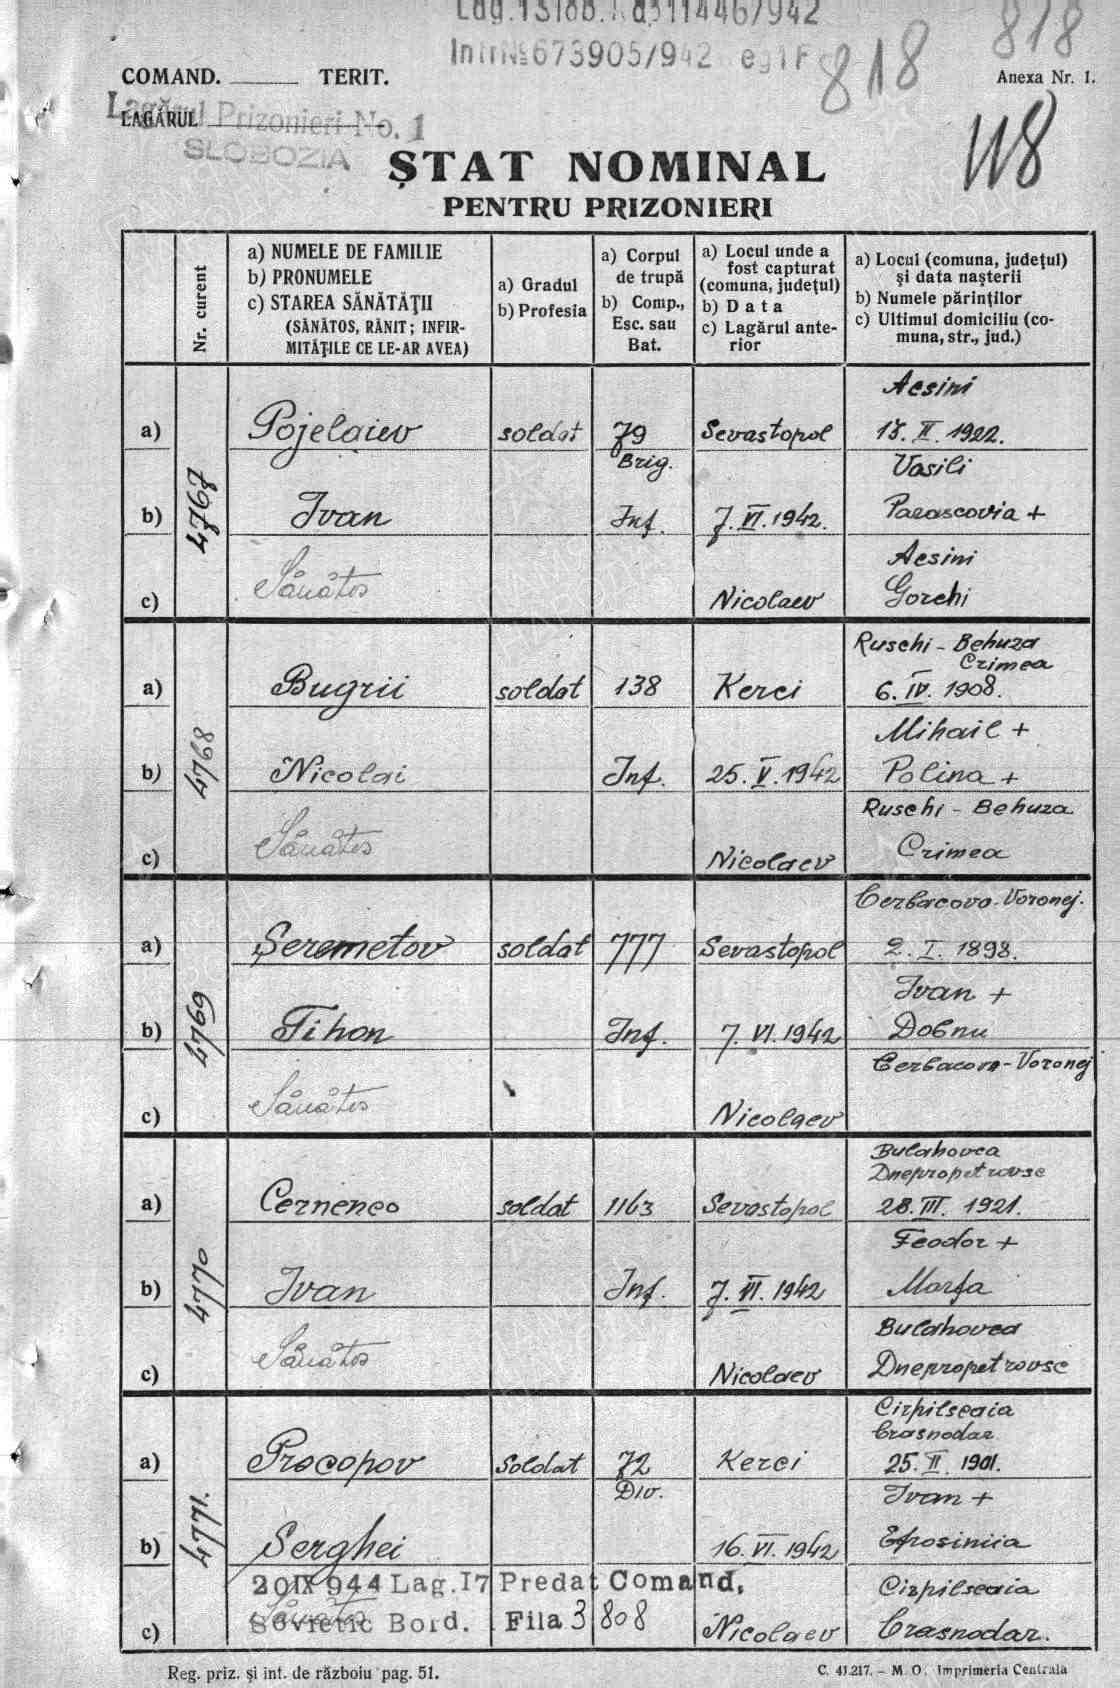 Lag. 13106. 11446/942
Intr № 673905/942
818
818
COMAND. TERIT.
Anexa Nr. 1.
LAGĂRUL
Lagărul Prizonieri No. 1
SLOBOZIA
118
ȘTAT NOMINAL
PENTRU PRIZONIERI
Nr. curent
a) NUMELE DE FAMILIE
b) PRONUMELE
c) STAREA SĂNĂTĂȚII
(SĂNĂTOS, RĂNIT; INFIR-
MITĂȚILE CE LE-AR AVEA)
a) Gradul
b) Profesia
a) Corpul
de trupă
b) Comp.,
Esc. sau
Bat.
a) Locul unde a
fost capturat
(comuna, județul)
b) Data
c) Lagărul ante-
rior
a) Locul (comuna, județul)
și data nașterii
b) Numele părinților
c) Ultimul domiciliu (co-
muna, str., jud.)
4767
Acsini
a) Pojelaiev soldat 79 Sevastopol 18. II. 1922.
Brig. Vasili
b) Ivan Inf. 7. VI. 1942. Parascovia +
Acsini
c) Sănătos Nicolaev Gorchi
4768
Ruschi - Behuza
Crimea
a) Bugrii soldat 138 Kerci 6. IV. 1908.
Mihail +
b) Nicolai Inf. 25. V. 1942 Polina +
Ruschi - Behuza
c) Sănătos Nicolaev Crimea
4769
Cerbacovo - Voronej.
a) Șeremetov soldat 777 Sevastopol 2. I. 1898.
Ivan +
b) Tihon Inf. 7. VI. 1942 Dobnu
Cerbacovo - Voronej
c) Sănătos Nicolaev
4770
Bulahovca
Dnepropetrovsc
a) Cerneneo soldat 1163 Sevastopol 28. III. 1921.
Feodor +
b) Ivan Inf. 7. VI. 1942 Marfa
Bulahovca
c) Sănătos Nicolaev Dnepropetrovsc
4771.
Cirpilscaia
Crasnodar
a) Procopov soldat 72 Kerci 25. II. 1901.
Div. Ivan +
b) Serghei 16. VI. 1942 Efrosiniia
20 IX 944 Lag. 17 Predat Comand,
Cirpilscaia
c) Sănătos Nicolaev Crasnodar.
Sovietic Bord. Fila 3 808
Reg. priz. și int. de războiu pag. 51.
C. 41.217. – M. O. Imprimeria Centrala